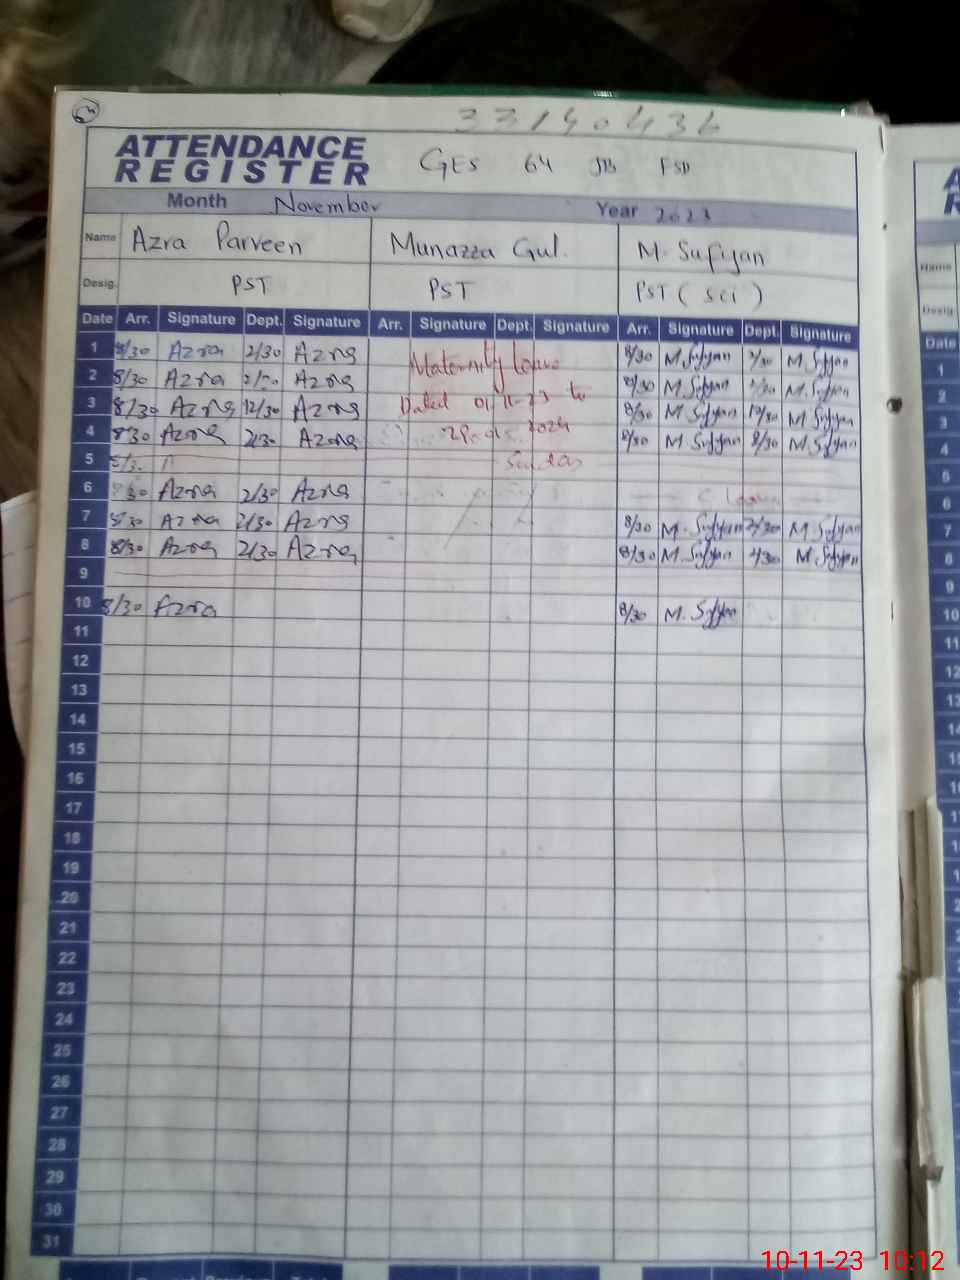 33140436
ATTENDANCE
REGISTER
GES 64 JB FSD
Month November Year 2023
Name Azra Parveen Munazza Gul. M. Sufyan
Desig. PST PST PST ( Sci )
Date Arr. Signature Dept. Signature Arr. Signature Dept. Signature Arr. Signature Dept. Signature
1 8/30 Azra 2/30 Azra Maternity leave 8/30 M.Sufyan 2/30 M.Sufyan
2 8/30 Azra Azra 8/30 M.Sufyan M.Sufyan
3 8/30 Azra 12/30 Azra Dated 01-11-23 to 8/30 M.Sufyan 12/30 M.Sufyan
4 8/30 Azra 2/30 Azra 2024 8/30 M.Sufyan M.Sufyan
5 Sunday
6 8/30 Azra 2/30 Azra C leave
7 8/30 Azra 2/30 Azra 8/30 M.Sufyan 2/30 M Sufyan
8 8/30 Azra 2/30 Azra 8/30 M.Sufyan M.Sufyan
9
10 8/30 Azra 8/30 M.Sufyan
11
12
13
14
15
16
17
18
19
20
21
22
23
24
25
26
27
28
29
30
31
Name
Desig.
Date
1
2
3
4
5
6
7
8
9
10
11
12
13
14
10-11-23 10:12